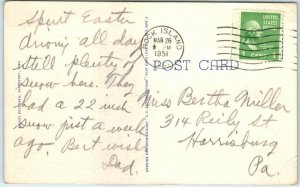 Spent Easter
driving all day
still plenty of
snow here. They
had a 22 inch
snow just a week
ago. Best wishes
Dad.
ROCK ISLAND
MAR 26
PM
1951
UNITED STATES
POST CARD
Miss Bertha Miller
314 Reily St
Harrisburg
Pa.